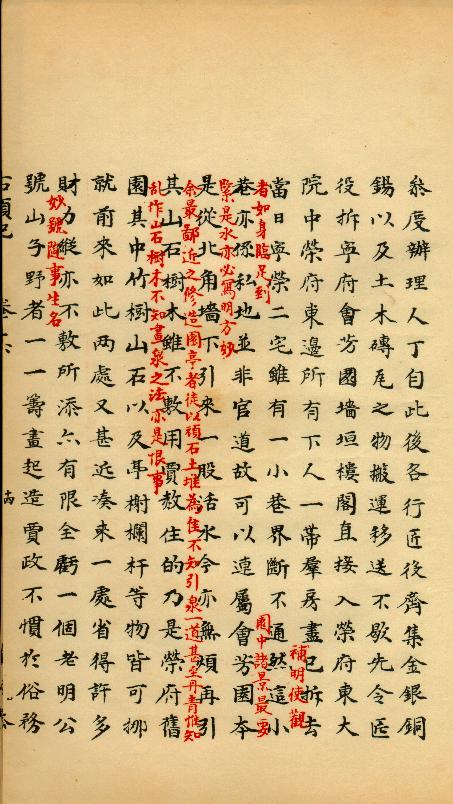 叅度辦理人丁自此後各行匠役齊集金銀銅
錫以及土木磚瓦之物搬運移送不歇先令匠
役拆寧府會芳園墻垣樓閣直接入榮府東大
院中榮府東邊所有下人一帶羣房盡已拆去
補明使觀
者如身臨足到
當日寧榮二宅雖有一小巷界斷不通然這小
巷亦係私地並非官道故可以連屬會芳園本
園中諸景最要
緊是水亦必寫明方妙
是從北角墻下引來一股活水今亦無煩再引
余最鄙近之修造園亭者徒以頑石土堆為佳不知引泉一道甚至丹青惟知
乱作山石樹木不知畫泉之法亦是恨事
其山石樹木雖不敷用賈赦住的乃是榮府舊
園其中竹樹山石以及亭榭欄杆等物皆可挪
就前來如此两處又甚近凑來一處省得許多
財力縱亦不敷所添亦有限全虧一個老明公
妙號隨事生名
號山子野者一一籌畫起造賈政不慣於俗務